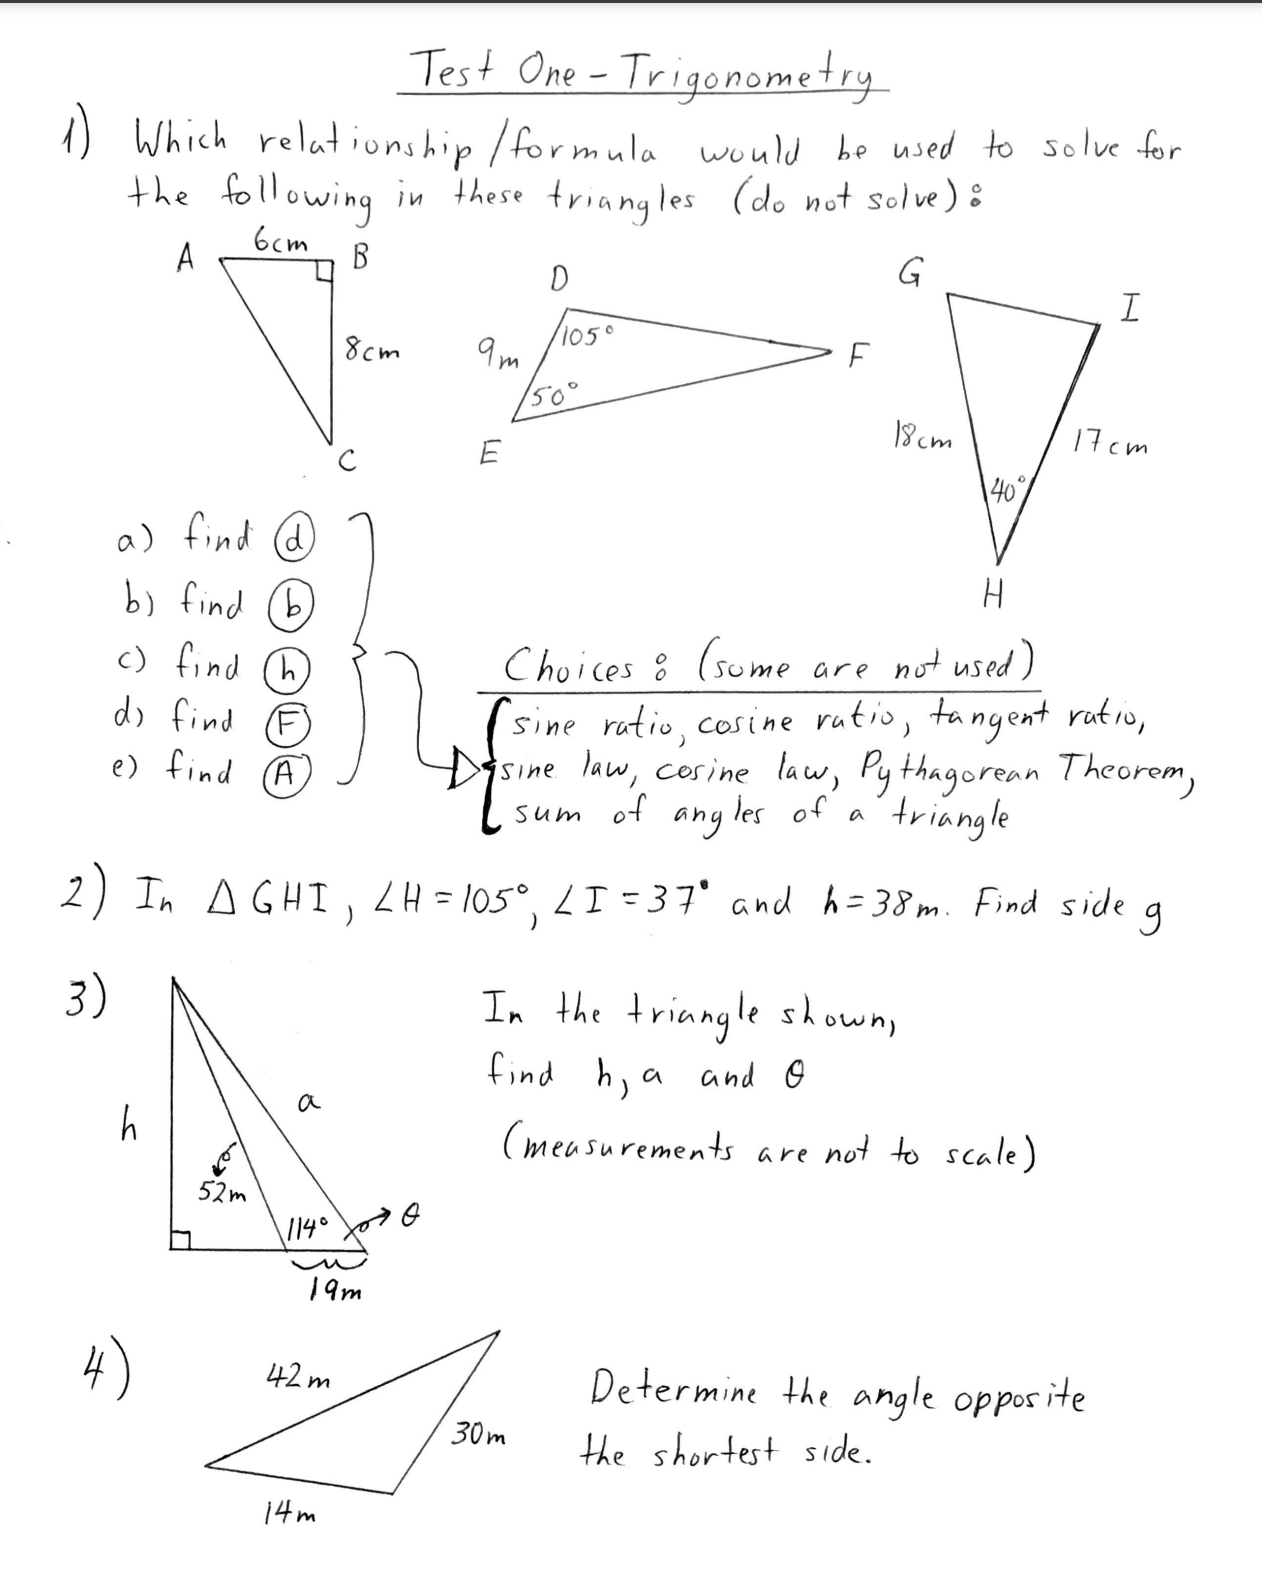 Test One - Trigonometry
1) Which relationship/formula would be used to solve for
the following in these triangles (do not solve):
A 6cm B
8cm
C
D
105°
9m
50°
E
F
G
I
18cm
17cm
40°
H
a) find d
b) find b
c) find h
d) find F
e) find A
Choices: (some are not used)
sine ratio, cosine ratio, tangent ratio,
sine law, cosine law, Pythagorean Theorem,
sum of angles of a triangle
2) In △GHI, ∠H = 105°, ∠I = 37° and h = 38m. Find side g
3)
h
a
52m
114°
θ
19m
In the triangle shown,
find h, a and θ
(measurements are not to scale)
4)
42m
30m
14m
Determine the angle opposite
the shortest side.